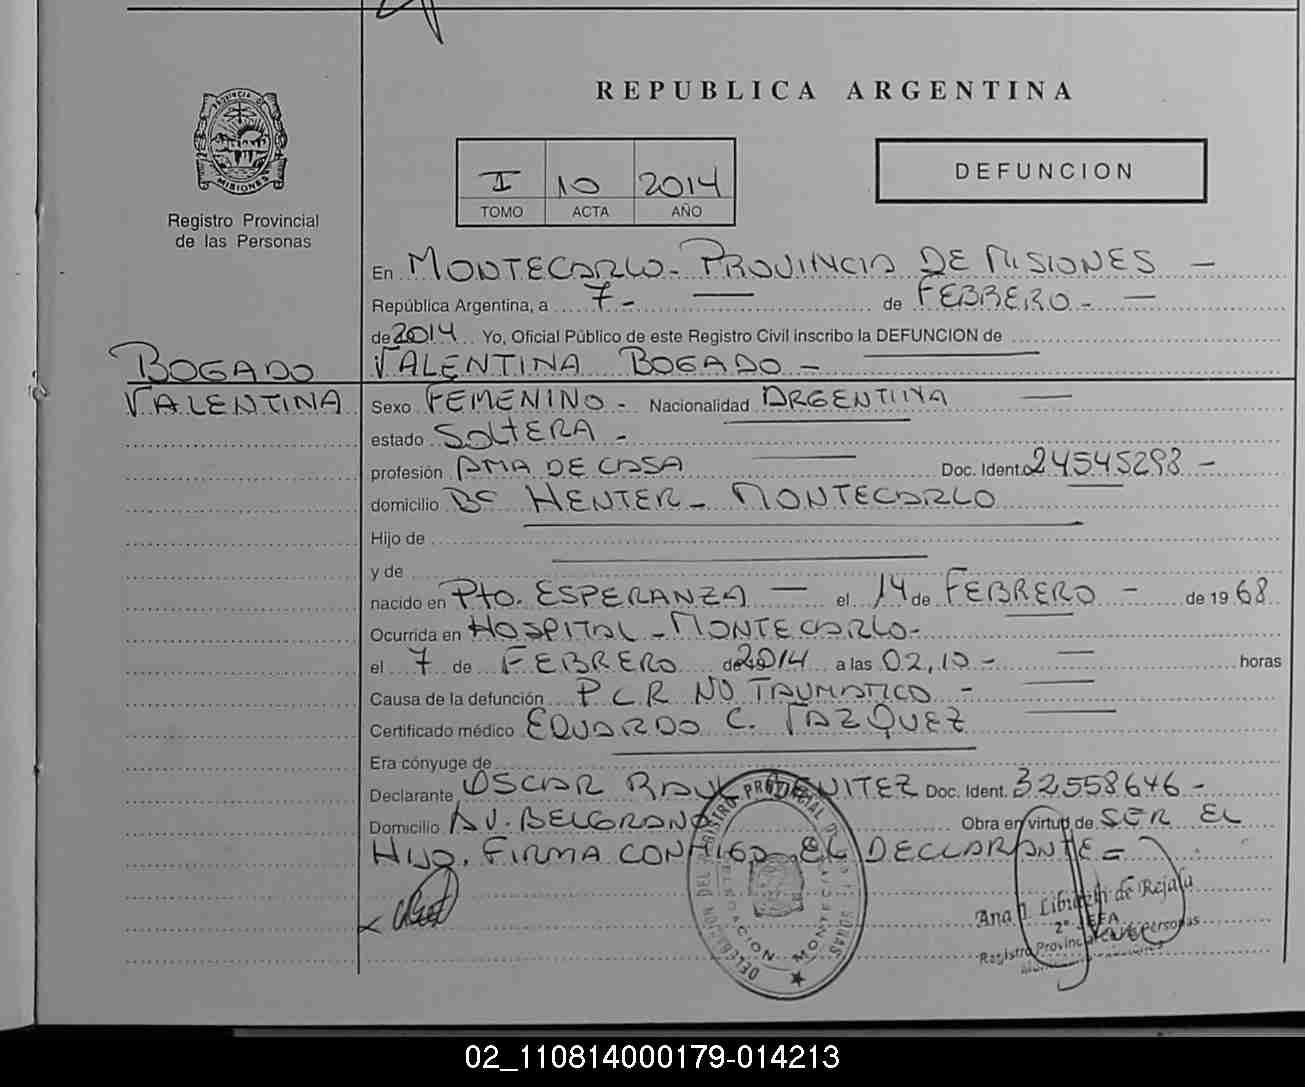 REPUBLICA ARGENTINA
PROVINCIA DE
MISIONES
Registro Provincial
de las Personas
I 10 2014
TOMO ACTA AÑO
DEFUNCION
En MONTECARLO - PROVINCIA DE MISIONES -
República Argentina, a 7 - de FEBRERO -
de 2014 Yo, Oficial Público de este Registro Civil inscribo la DEFUNCION de
BOGADO
VALENTINA
VALENTINA BOGADO -
Sexo FEMENINO - Nacionalidad ARGENTINA
estado SOLTERA -
profesión AMA DE CASA Doc. Ident. 24545298 -
domicilio Bº HENTER - MONTECARLO
Hijo de
y de
nacido en Pto. ESPERANZA - el 14 de FEBRERO - de 1968
Ocurrida en HOSPITAL - MONTECARLO -
el 7 de FEBRERO de 2014 a las 02,10 - horas
Causa de la defunción PCR NO TRAUMATICO -
Certificado médico EDUARDO C. VAZQUEZ
Era cónyuge de
Declarante OSCAR RAUL BENITEZ Doc. Ident. 32558646 -
Domicilio AV. BELGRANO Obra en virtud de SER EL
HIJO. FIRMA CONMIGO EL DECLARANTE =
DELEGACION DEL REGISTRO PROVINCIAL DE LAS PERSONAS
MONTECARLO
Ana I. de Rejala
2º JEFA
Registro Provincial de las Personas
02_110814000179-014213